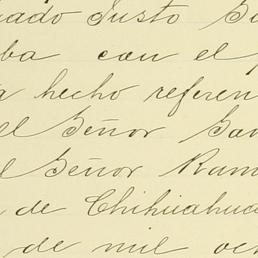 Justo
ba con el
hecho referen
el Señor
el Señor Ram
de Chihuahua
de mil